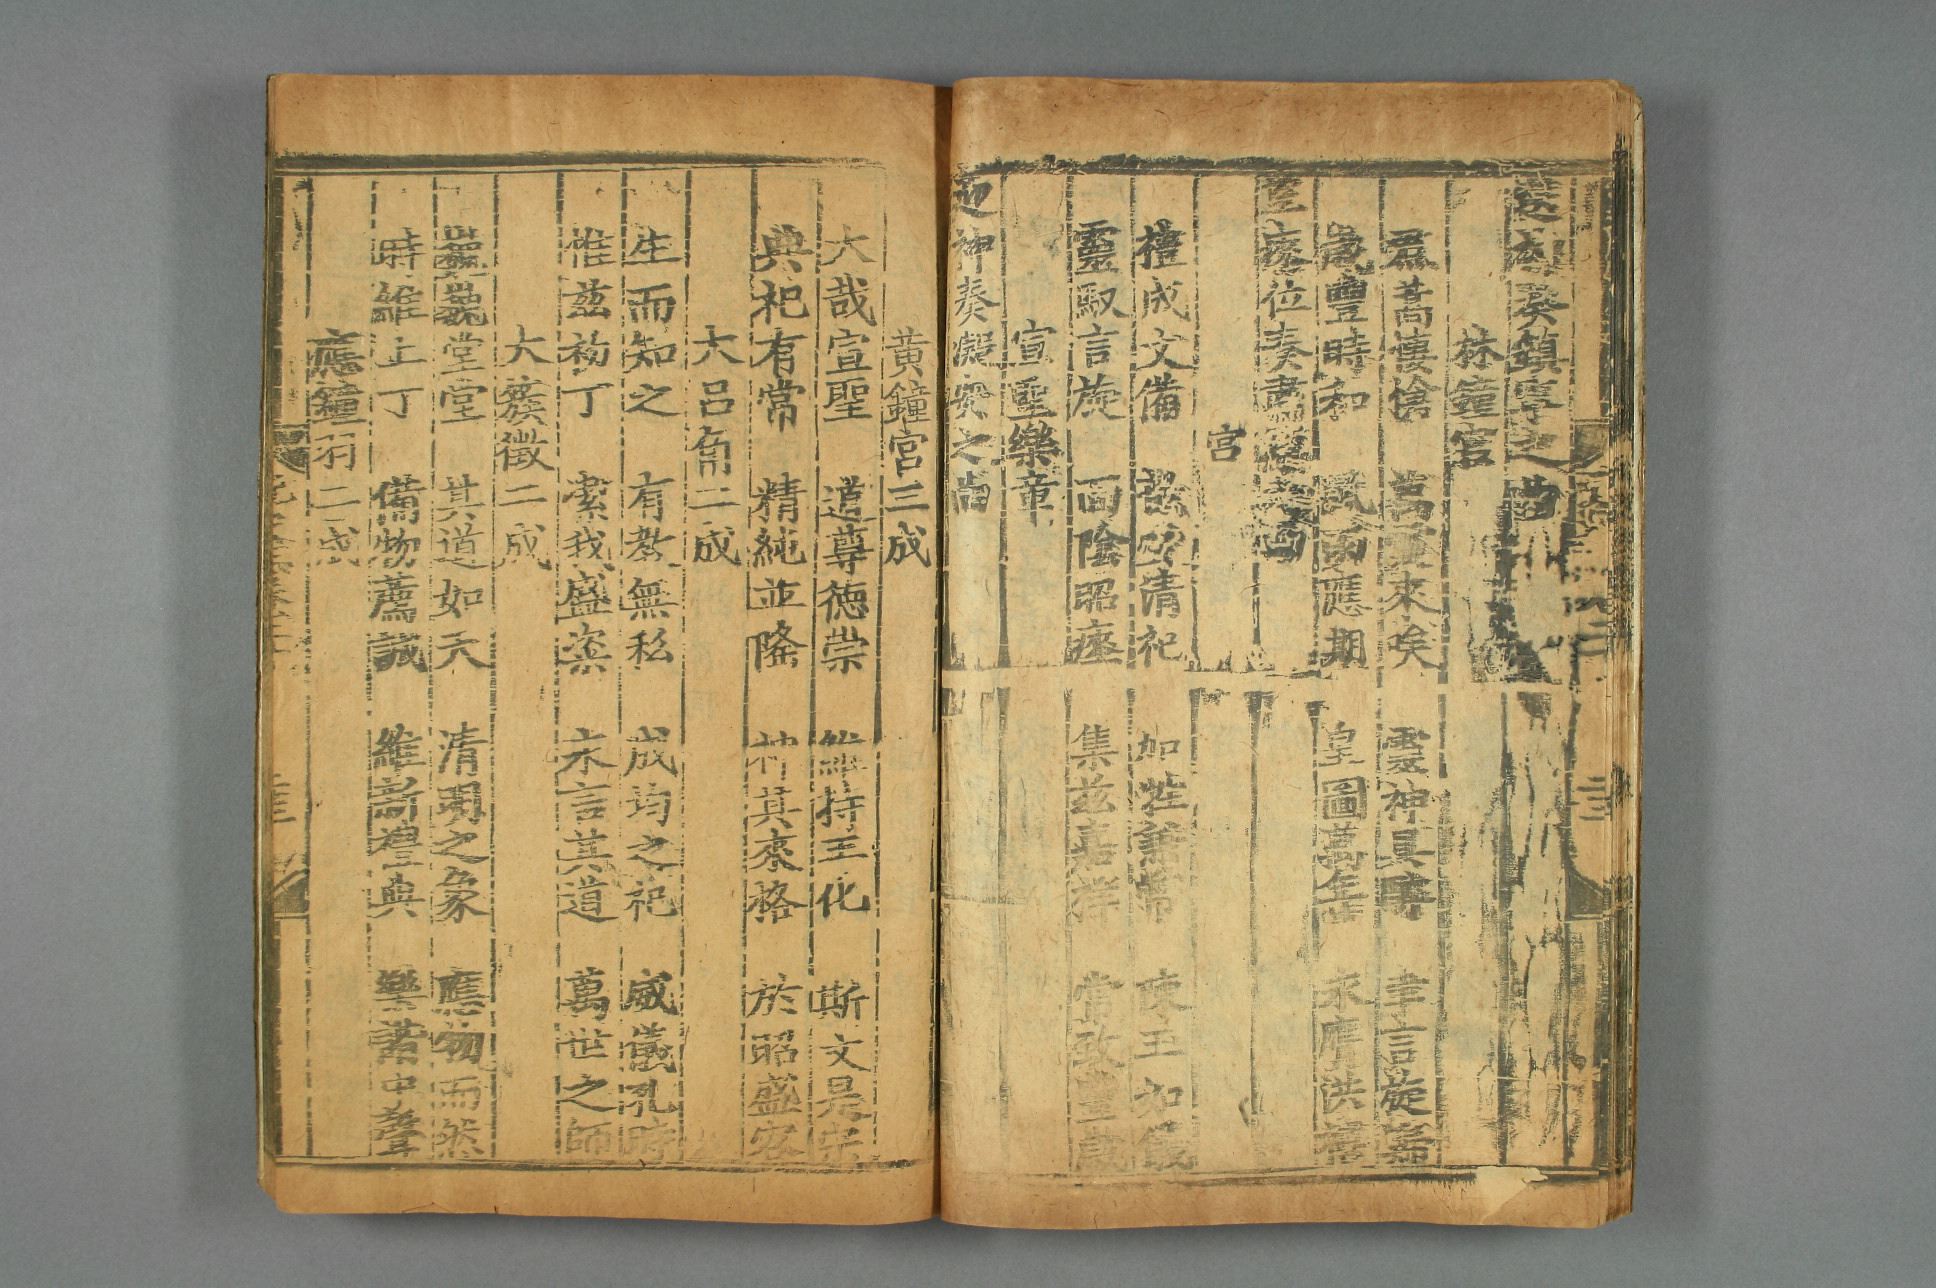 送神奏鎮寧之曲
林鐘宮
焄蒿悽愴　萬靈來唉　靈神具醉　聿言旋歸
歲豐時和　風雨應期　皇圖萬年　永膺洪禧
望瘞位奏肅寧之曲
宮
禮成文備　歆受清祀　加牲兼幣　陳玉如儀
靈馭言旋　面陰昭瘞　集兹嘉祥　常致豐歲
宣聖樂章
迎神奏凝安之曲
黃鐘宮三成
大哉宣聖　道尊德崇　維持王化　斯文是宗
典祀有常　精純並隆　神其來格　於昭盛容
大呂角二成
生而知之　有教無私　成均之祀　威儀孔時
惟兹初丁　絜我盛粢　永言其道　萬世之師
大簇徵二成
巍巍堂堂　其道如天　清明之象　應物而然
時維上丁　備物薦誠　維禮典　樂中聲
應鐘羽二成